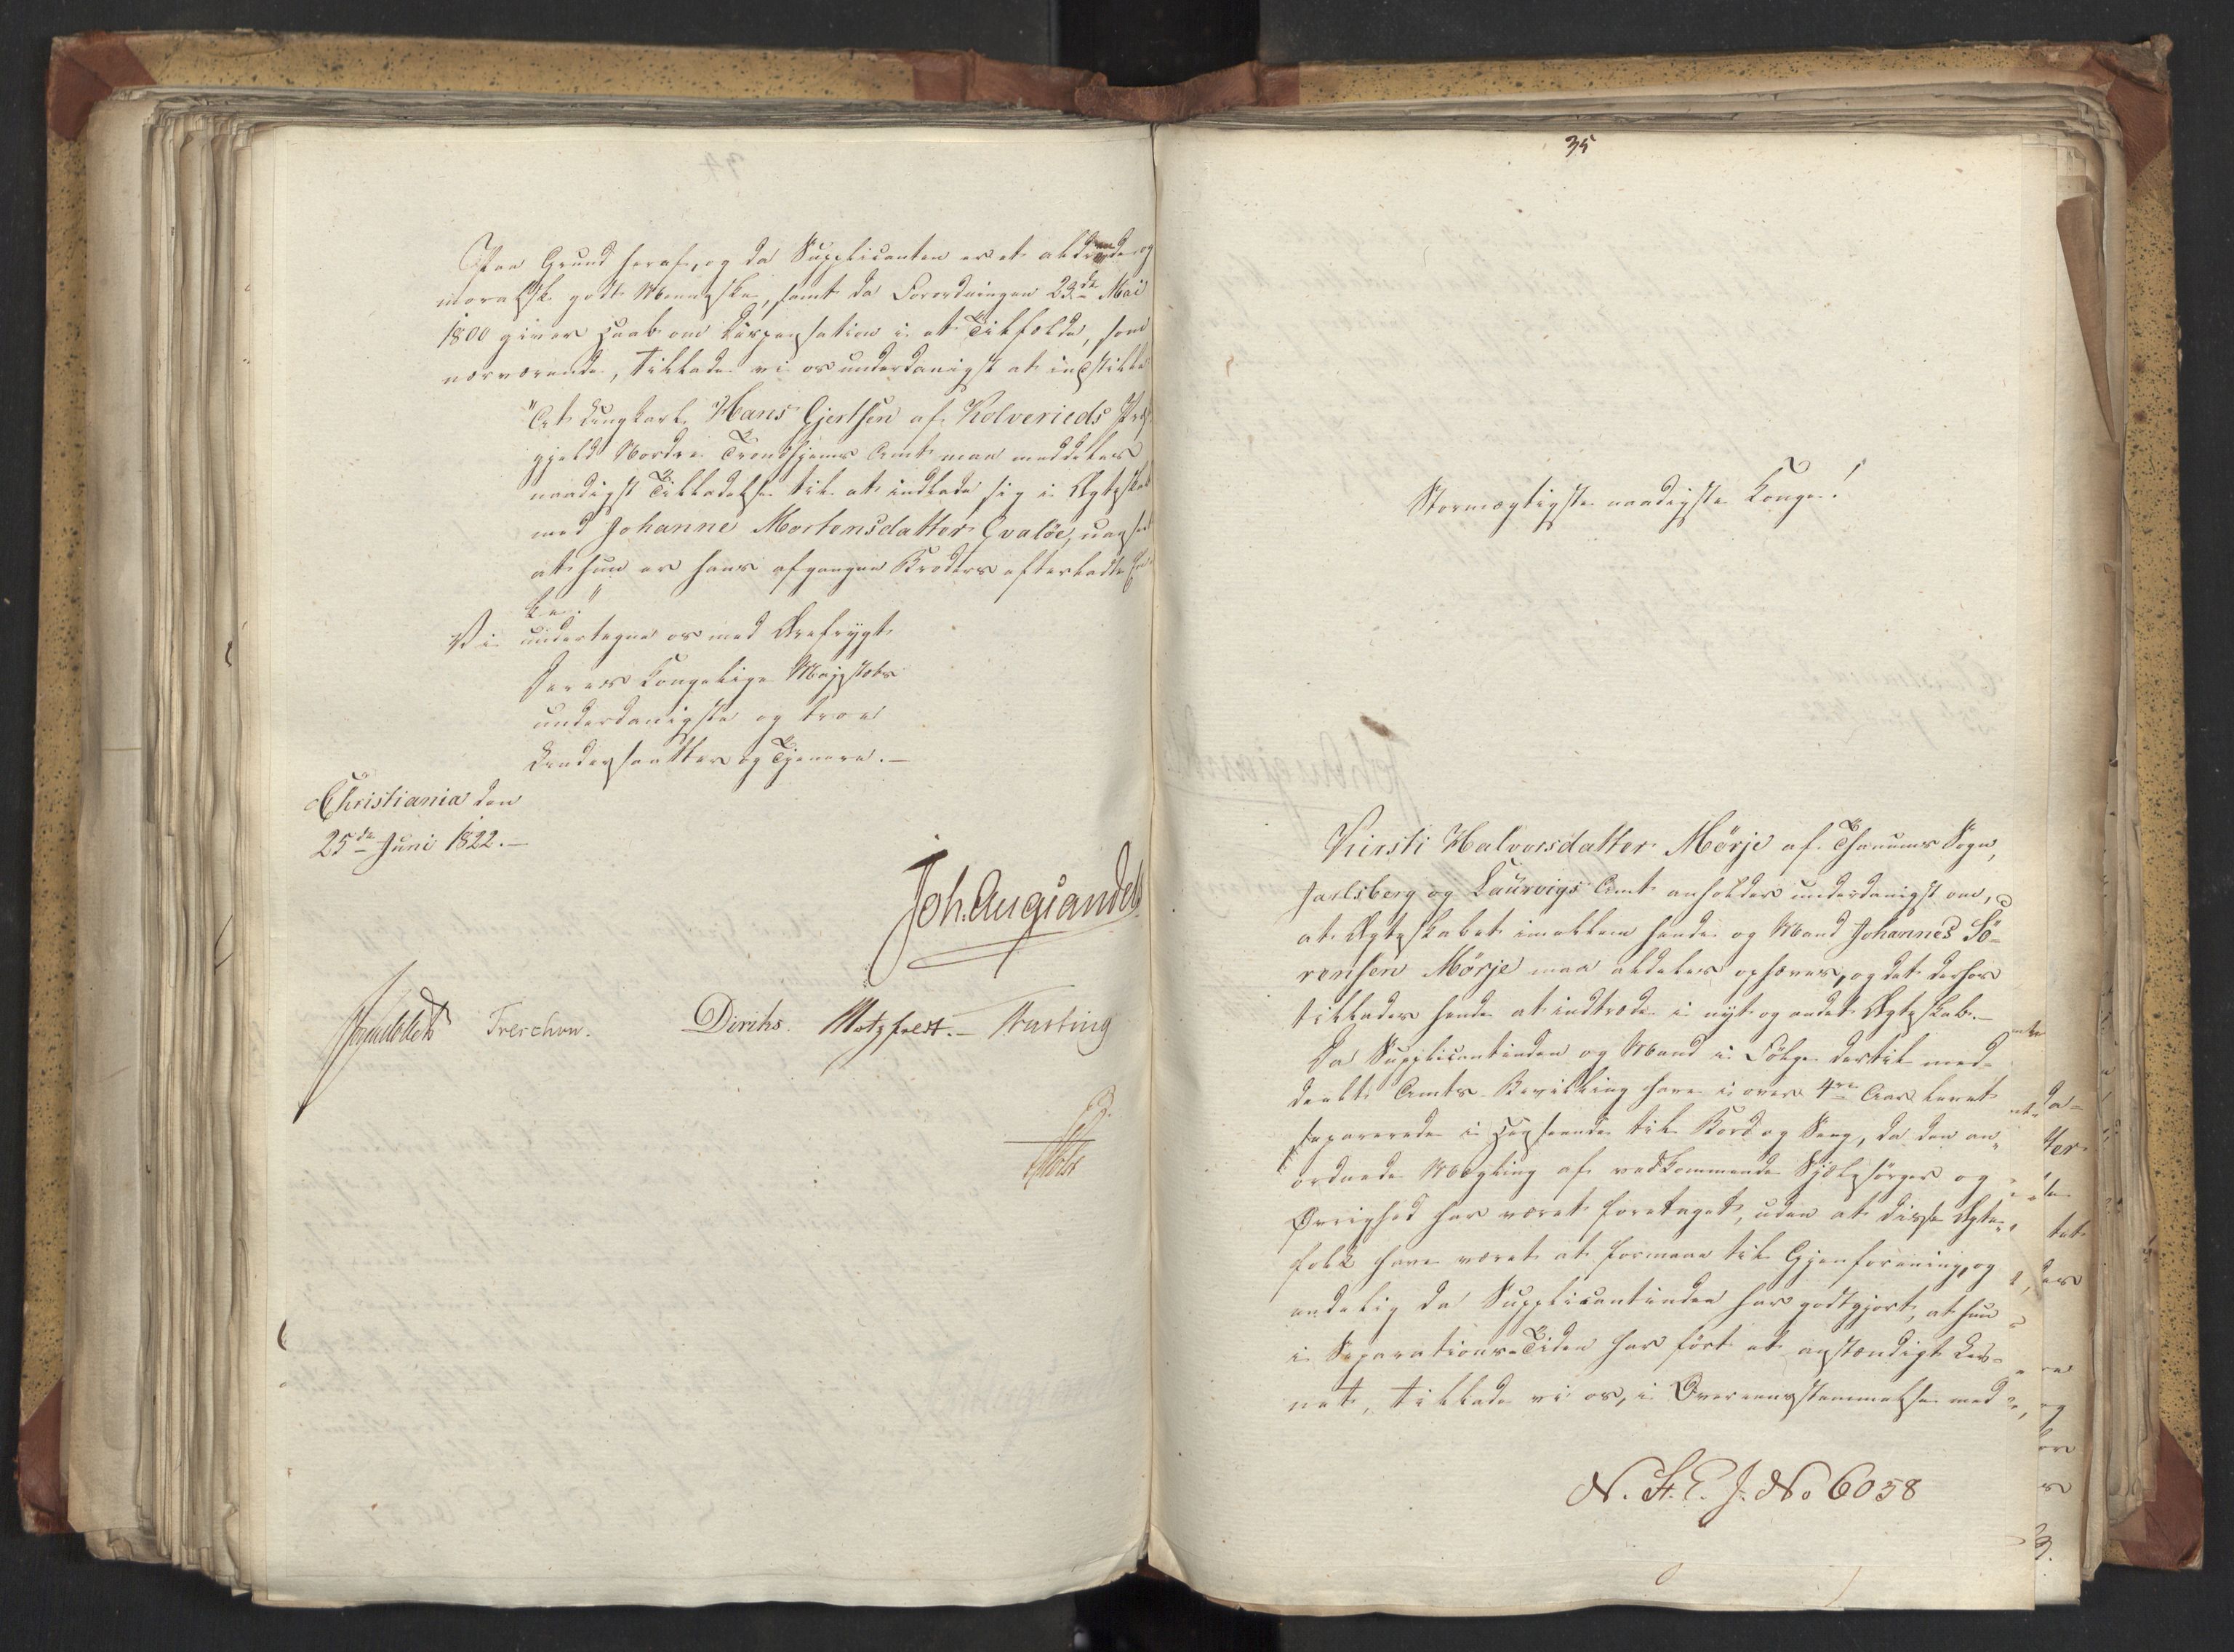 Paa Grund heraf, og da Supplicanten er et aldrende og
moralsk godt Menneske, samt da Forordningen 23de Mai
1800 giver Haab om Dispensation i et Tilfælde, som
nærværende, tillade vi os underdanigst at indstille
"At Ungkarl Hans Gjertsen af Kolvereids Præste-
gjeld Nordre Trondhjems Amt maa meddeles
naadigst Tilladelse til at indlade sig i Ægteskab
med Johanne Mortensdatter Qvaløe, uanseet
at hun er hans afgangne Broders efterladte En-
ke."
Vi undertegne os med Ærefrygt
Deres Kongelige Majestæts
underdanigste og troe
Undersaatter og Tjenere.—
Christiania den
25de Juni 1822.—
Joh. Aug. Sandels
Sommerhielm Treschow. Diriks. Motzfeldt.— Fasting
Holst
35
Stormægtigste naadigste Konge!
Kirsti Halvorsdatter Mørje af Thanums Sogn,
Jarlsberg og Laurvigs Amt anholder underdanigst om,
at Ægteskabet imellem hende og Mand Johannes Sö-
rensen Mørje maa aldeles ophæves, og det derhos
tillades hende at indtræde i nyt og andet Ægteskab.—
Da Supplicantinden og Mand i Følge dertil med-
deelt Amts-Bevilling have i over 4re Aar levet
separerede i Henseende til Bord og Seng, da den an-
ordnede Mægling af vedkommende Sjælesørger og
Øvrighed har været foretaget, uden at disse Ægte-
folk have været at formaae til Gjenforening, og
endelig da Supplicantinden har godtgjort, at hun
i Separations-Tiden har ført et anstændigt Lev-
net, tillade vi os, i Overeensstemmelse med
N. St. E. J. No 6058